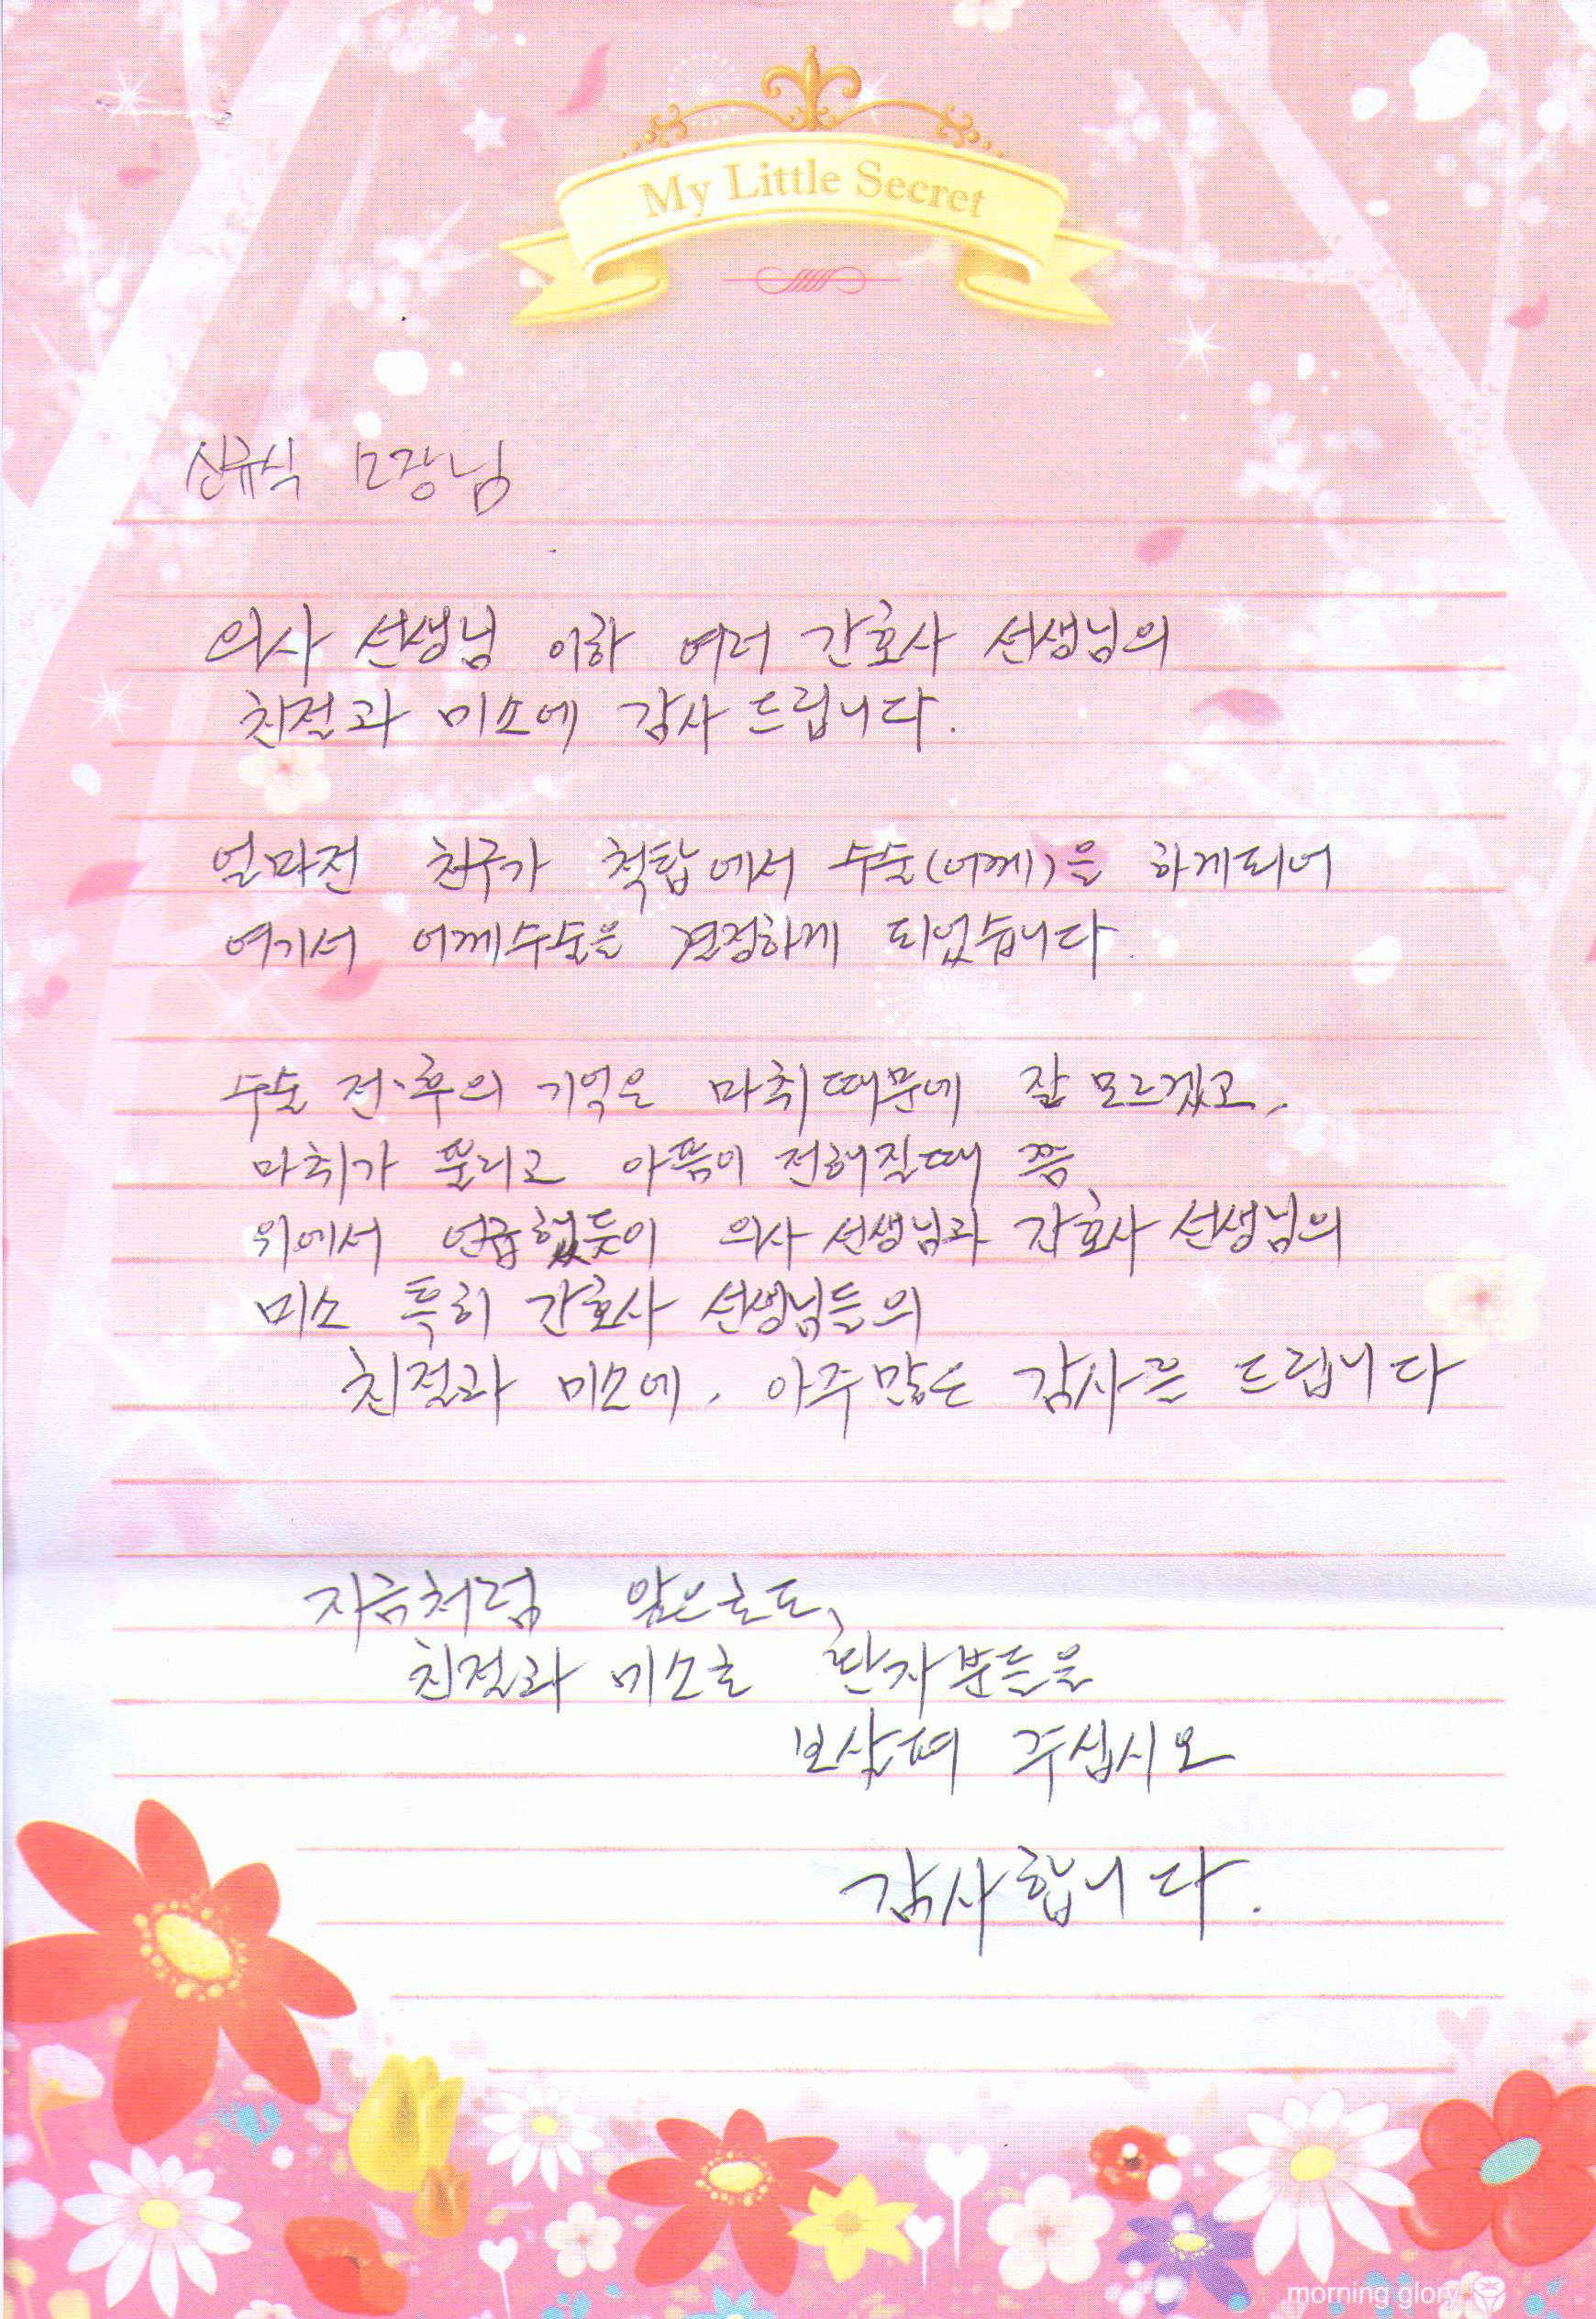 My Little Secret
신규식 모장님
의사 선생님 이하 여러 간호사 선생님의
친절과 미소에 감사 드립니다.
얼마전 친구가 척탑에서 수술(어께)을 하게되어
여기서 어께수술을 결정하게 되었습니다.
수술 전·후의 기억은 마취때문에 잘 모르겠고,
마취가 풀리고 아픔이 전해질때 쯤
위에서 언급했듯이 의사 선생님과 간호사 선생님의
미소 특히 간호사 선생님들의
친절과 미소에, 아주많은 감사를 드립니다
지금처럼 앞으로도,
친절과 미소로 환자분들을
보살펴 주십시오
감사합니다.
morning glory